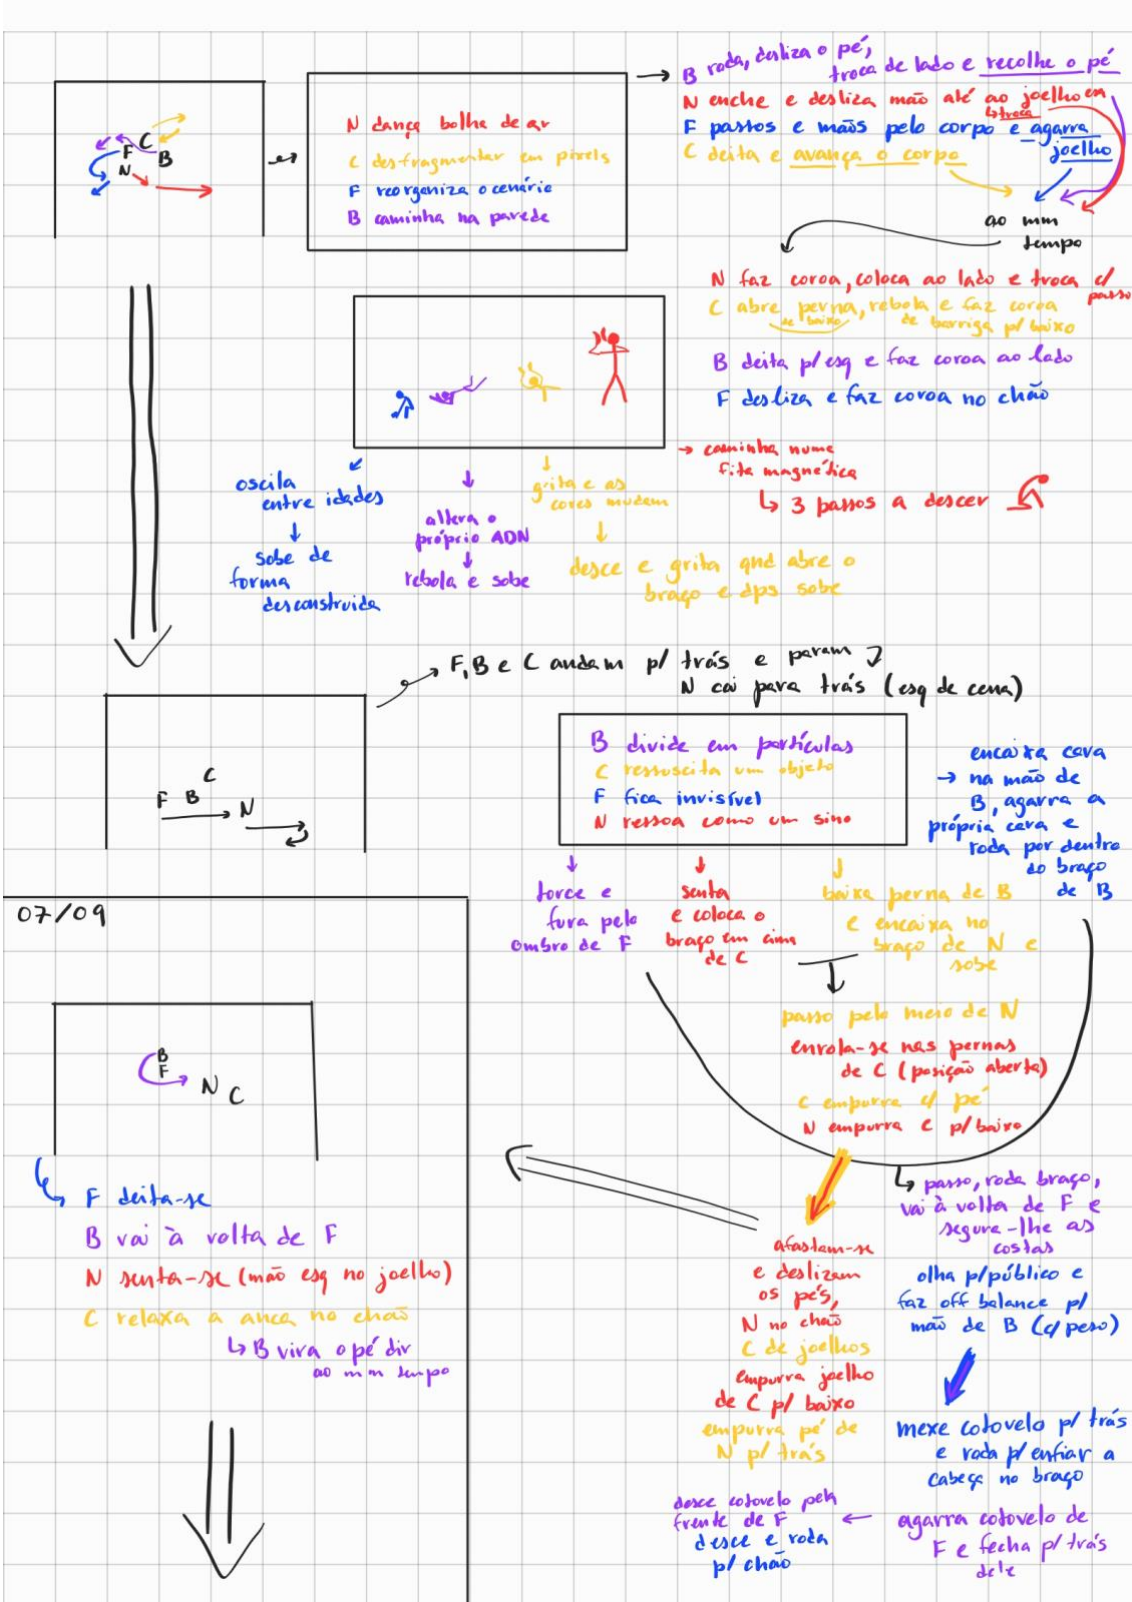 C
F
B
N
N dança bolha de ar
C desfragmentar em pixels
F reorganiza o cenário
B caminha na parede
B roda, desliza o pé,
troca de lado e recolhe o pé
N enche e desliza mão até ao joelho em
troca
F passos e mãos pelo corpo e agarra
joelho
C deita e avança o corpo
ao mm
tempo
N faz coroa, coloca ao lado e troca c/
passo
C abre perna, rebola e faz coroa
de baixo
de barriga p/ baixo
B deita p/ esq e faz coroa ao lado
F desliza e faz coroa no chão
oscila
entre idades
sobe de
forma
desconstruida
altera o
próprio ADN
rebola e sobe
grita e as
cores mudam
desce e grita qnd abre o
braço e dps sobe
caminha numa
fita magnética
3 passos a descer
F, B e C andam p/ trás e param
N cai para trás (esq de cena)
C
F B
N
B divide em partículas
C ressuscita um objeto
F fica invisível
N ressoa como um sino
encaixa cara
na mão de
B, agarra a
própria cara e
roda por dentro
do braço
de B
torce e
fura pelo
ombro de F
senta
e coloca o
braço em cima
de C
baixa perna de B
e encaixa no
braço de N e
sobe
passo pelo meio de N
enrola-se nas pernas
de C (posição aberta)
C empurra c/ pé
N empurra e p/ baixo
passo, roda braço,
vai à volta de F e
segura-lhe as
costas
olha p/ público e
faz off balance p/
mão de B (c/ peso)
mexe cotovelo p/ trás
e roda p/ enfiar a
cabeça no braço
agarra cotovelo de
F e fecha p/ trás
dele
desce cotovelo pela
frente de F
desce e roda
p/ chão
afastam-se
e deslizam
os pés,
N no chão
C de joelhos
empurra joelho
de C p/ baixo
empurra pé de
N p/ trás
07/09
B
F
N C
F deita-se
B vai à volta de F
N senta-se (mão esq no joelho)
C relaxa a anca no chão
B vira o pé dir
ao mm tempo